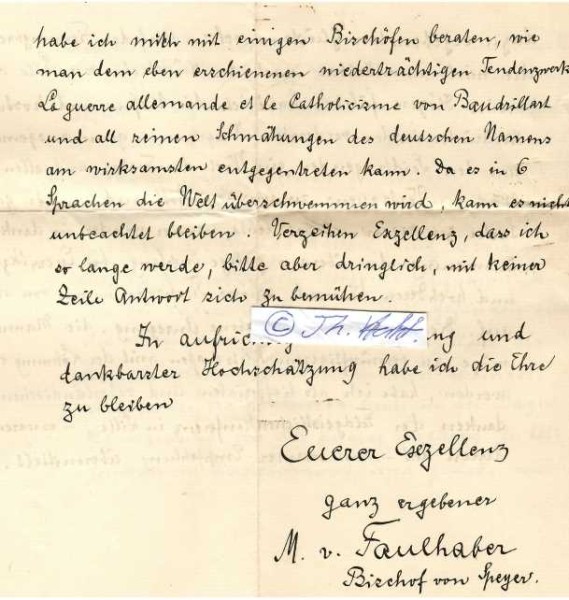 habe ich mich mit einigen Bischöfen beraten, wie
man dem eben erschienenen niederträchtigen Tendenzwerk
La guerre allemande et le Catholicisme von Baudrillart
und all seinen Schmähungen des deutschen Namens
am wirksamsten entgegentreten kann. Da es in 6
Sprachen die Welt überschwemmen wird, kann es nicht
unbeachtet bleiben. Verzeihen Exzellenz, dass ich
so lange werde, bitte aber dringlich, mit keiner
Zeile Antwort sich zu bemühen.
In aufrich ng und
© Th.
dankbarster Hochschätzung habe ich die Ehre
zu bleiben
Euerer Exzellenz
ganz ergebener
M. v. Faulhaber
Bischof von Speyer.